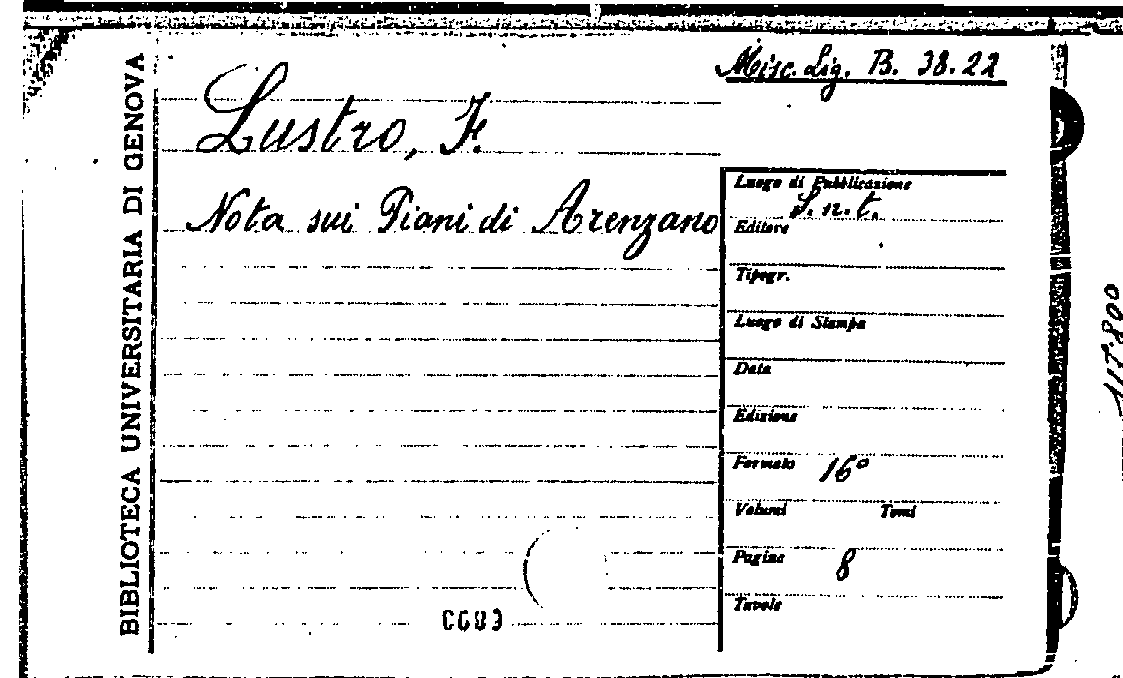 BIBLIOTECA UNIVERSITARIA DI GENOVA
Misc. Lig. B. 38.22
Lustro, F.
Nota sui Piani di Arenzano
Luogo di Pubblicazione
S. n. t.
Editore
Tipogr.
Luogo di Stampa
Data
Edizione
Formato 16°
Volumi Tomi
Pagine 8
Tavole